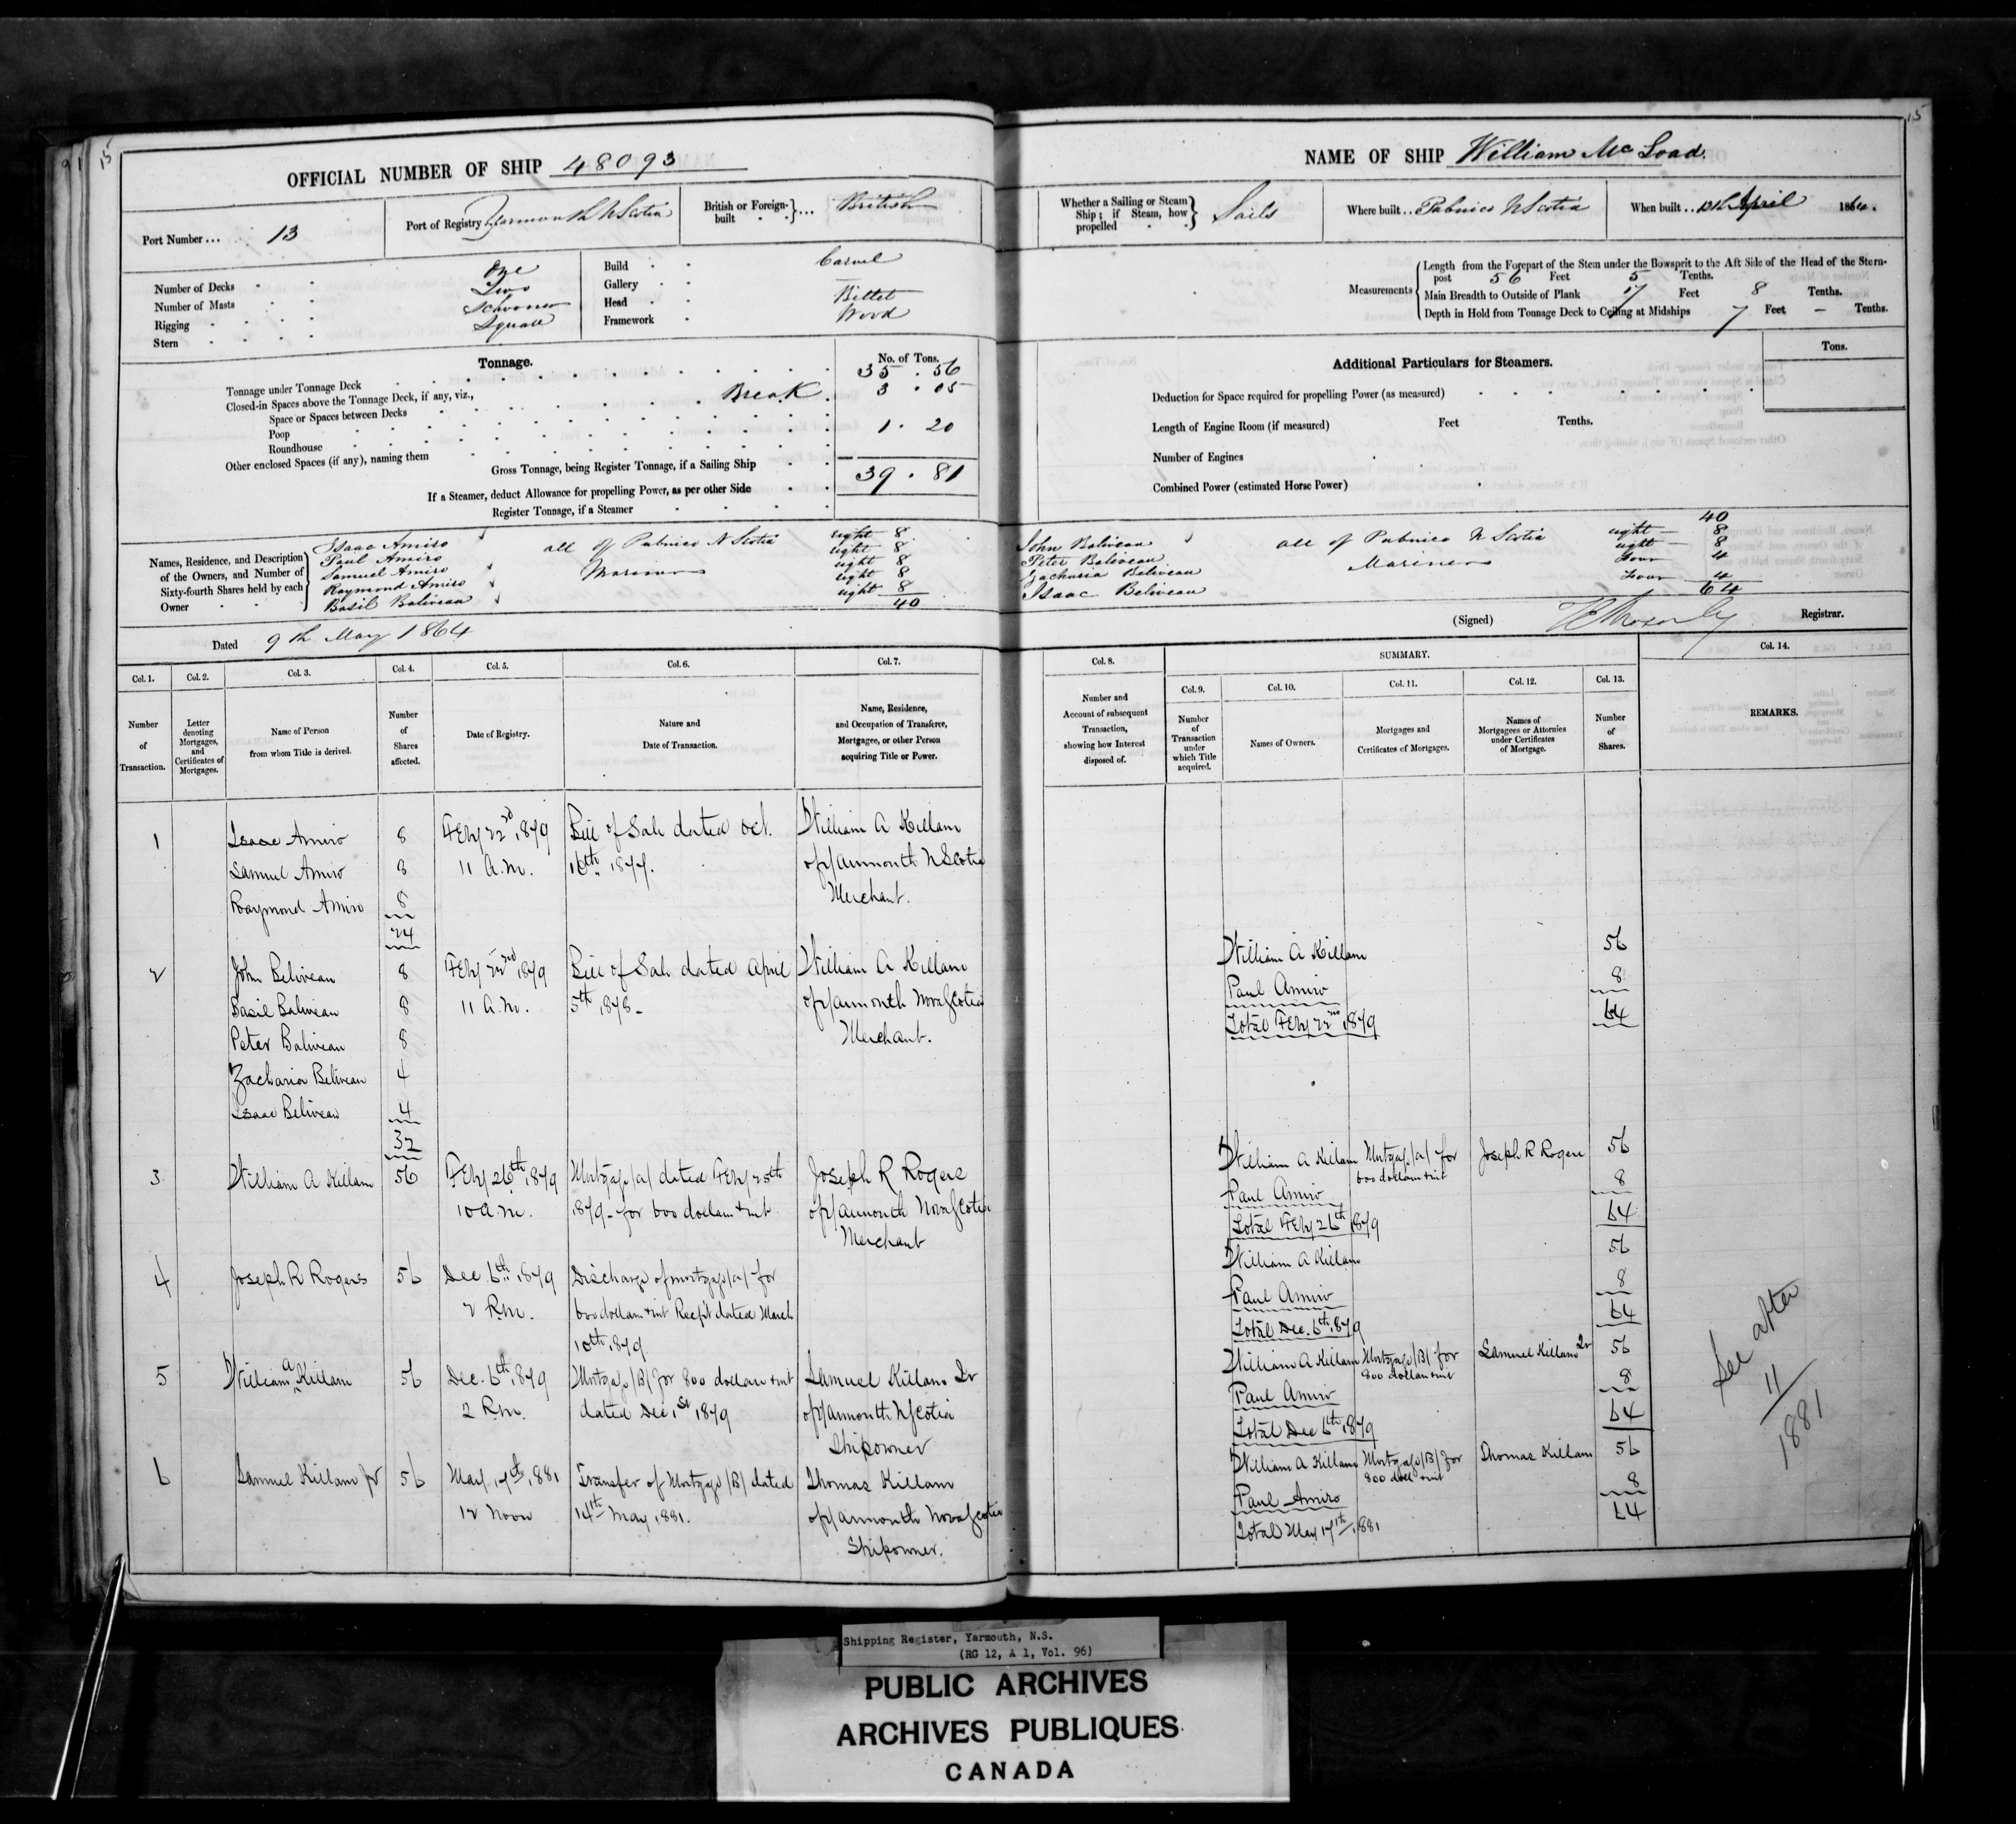 15
15
91
OFFICIAL NUMBER OF SHIP 48093
Port Number ... 13
Port of Registry Yarmouth N Scotia
British or Foreign-built ... British
Number of Decks One
Number of Masts Two
Rigging Schooner
Stern Square
Build Carvel
Gallery —
Head Billet
Framework Wood
Tonnage.
No. of Tons.
Tonnage under Tonnage Deck 35 . 56
Closed-in Spaces above the Tonnage Deck, if any, viz.,
Space or Spaces between Decks Break 3 . 05
Poop
Roundhouse 1 . 20
Other enclosed Spaces (if any), naming them
Gross Tonnage, being Register Tonnage, if a Sailing Ship 39 . 81
If a Steamer, deduct Allowance for propelling Power, as per other Side
Register Tonnage, if a Steamer
Names, Residence, and Description of the Owners, and Number of Sixty-fourth Shares held by each Owner
Isaac Amiro eight 8
Paul Amiro all of Pubnico N Scotia eight 8
Samuel Amiro Mariners eight 8
Raymond Amiro eight 8
Basil Baliveau eight 8
40
Dated 9th May 1864
NAME OF SHIP William McLoad.
Whether a Sailing or Steam Ship; if Steam, how propelled Sails
Where built .. Pubnico N Scotia
When built .. 13th April 1864.
Measurements
Length from the Forepart of the Stem under the Bowsprit to the Aft Side of the Head of the Stern-
post 56 Feet 5 Tenths.
Main Breadth to Outside of Plank 17 Feet 8 Tenths.
Depth in Hold from Tonnage Deck to Ceiling at Midships 7 Feet — Tenths.
Additional Particulars for Steamers.
Tons.
Deduction for Space required for propelling Power (as measured)
Length of Engine Room (if measured) Feet Tenths.
Number of Engines
Combined Power (estimated Horse Power)
40
John Baliveau all of Pubnico N Scotia eight — 8
Peter Baliveau Mariners eight — 8
Zacharia Beliveau Four 4
Isaac Beliveau Four 4
64
(Signed) Registrar.
Col. 1. Col. 2. Col. 3. Col. 4. Col. 5. Col. 6. Col. 7.
Number of Transaction.
Letter denoting Mortgages, and Certificates of Mortgages.
Name of Person from whom Title is derived.
Number of Shares affected.
Date of Registry.
Nature and Date of Transaction.
Name, Residence, and Occupation of Transferee, Mortgagee, or other Person acquiring Title or Power.
1 Isaac Amiro 8 Feby 22nd 1879 Bill of Sale dated Oct. William A Killam
Samuel Amiro 8 11 A.M. 16th 1877. of Yarmouth N Scotia
Raymond Amiro 8 Merchant.
24
2 John Beliveau 8 Feby 22nd 1879 Bill of Sale dated April William A Killam
Basil Baliveau 8 11 A.M. 5th 1878 — of Yarmouth Nova Scotia
Peter Baliveau 8 Merchant.
Zacharia Beliveau 4
Isaac Beliveau 4
32
3 William A Killam 56 Feby 26th 1879 Mortgage (A) dated Feby 25th Joseph R Rogers
10 a.m. 1879 — for 600 dollars & int of Yarmouth Nova Scotia
Merchant
4 Joseph R Rogers 56 Dec. 6th 1879 Discharge of mortgage (A) for
2 P.M. 600 dollars & int Recept dated March
10th 1879
5 William A Killam 56 Dec. 6th 1879 Mortgage (B) for 800 dollars & int Samuel Killam Jr
2 P.M. dated Dec 1st 1879 of Yarmouth N Scotia
Shipowner
6 Samuel Killam Jr 56 May 17th 1881 Transfer of Mortgage (B) dated Thomas Killam
12 Noon 14th May 1881. of Yarmouth Nova Scotia
Shipowner.
SUMMARY.
Col. 8. Col. 9. Col. 10. Col. 11. Col. 12. Col. 13. Col. 14.
Number and Account of subsequent Transaction, showing how Interest disposed of.
Number of Transaction under which Title acquired.
Names of Owners.
Mortgages and Certificates of Mortgages.
Names of Mortgagees or Attornies under Certificates of Mortgage.
Number of Shares.
REMARKS.
William A Killam 56
Paul Amiro 8
Total Feby 22nd 1879 64
William A Killam Mortgage (A) for 600 dollars & int Joseph R Rogers 56
Paul Amiro 8
Total Feby 26th 1879 64
William A Killam 56
Paul Amiro 8
Total Dec. 6th 1879 64
William A Killam Mortgage (B) for 800 dollars & int Samuel Killam Jr 56
Paul Amiro 8
Total Dec 6th 1879 64
William A Killam Mortgage (B) for 800 doll & int Thomas Killam 56
Paul Amiro 8
Total May 17th 1881 64
See after
11
1881
Shipping Register, Yarmouth, N.S.
(RG 12, A 1, Vol. 96)
PUBLIC ARCHIVES
ARCHIVES PUBLIQUES
CANADA